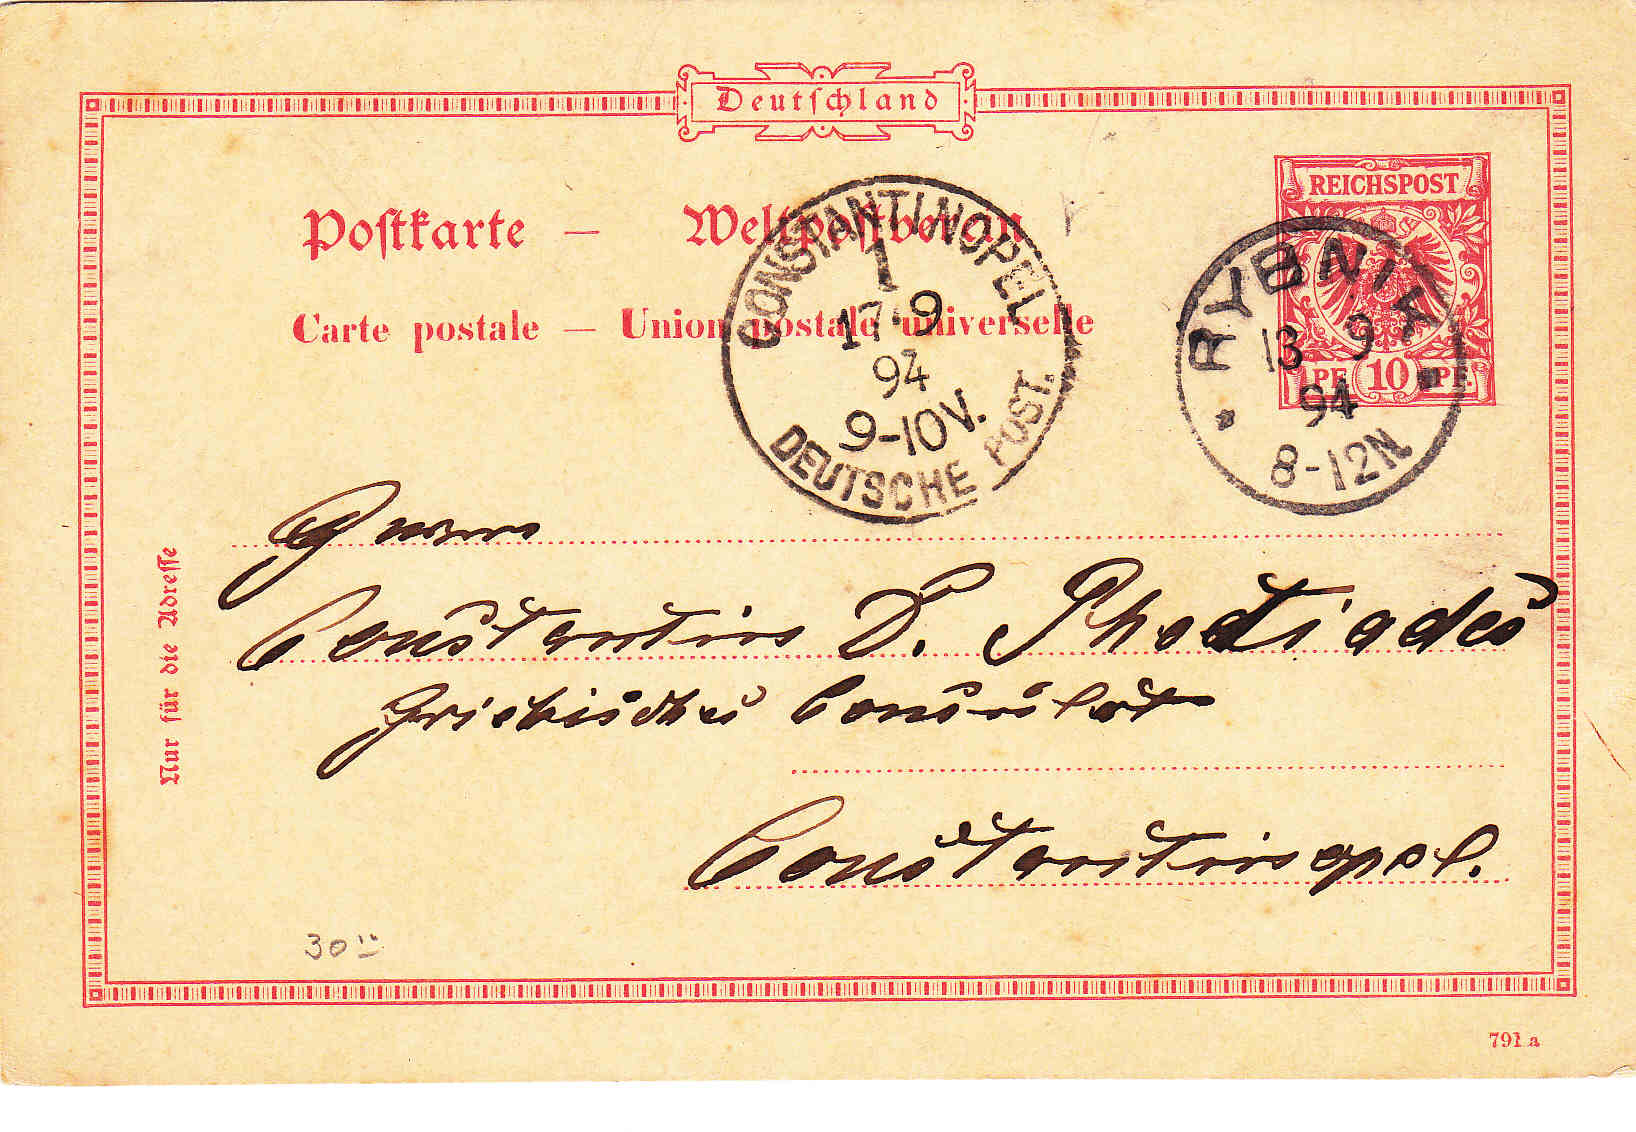 Deutschland
REICHSPOST
Postkarte — Weltpostverein
Carte postale — Union postale universelle
PF 10 PF.
CONSTANTINOPEL
1
17.9
94
9-10V.
DEUTSCHE POST.
RYBNIK
13 9
94
8-12N
* *
Herrn
Constantin D. Photiades
Griechisches Consulat
Constantinopel.
Nur für die Adresse
30
791 a